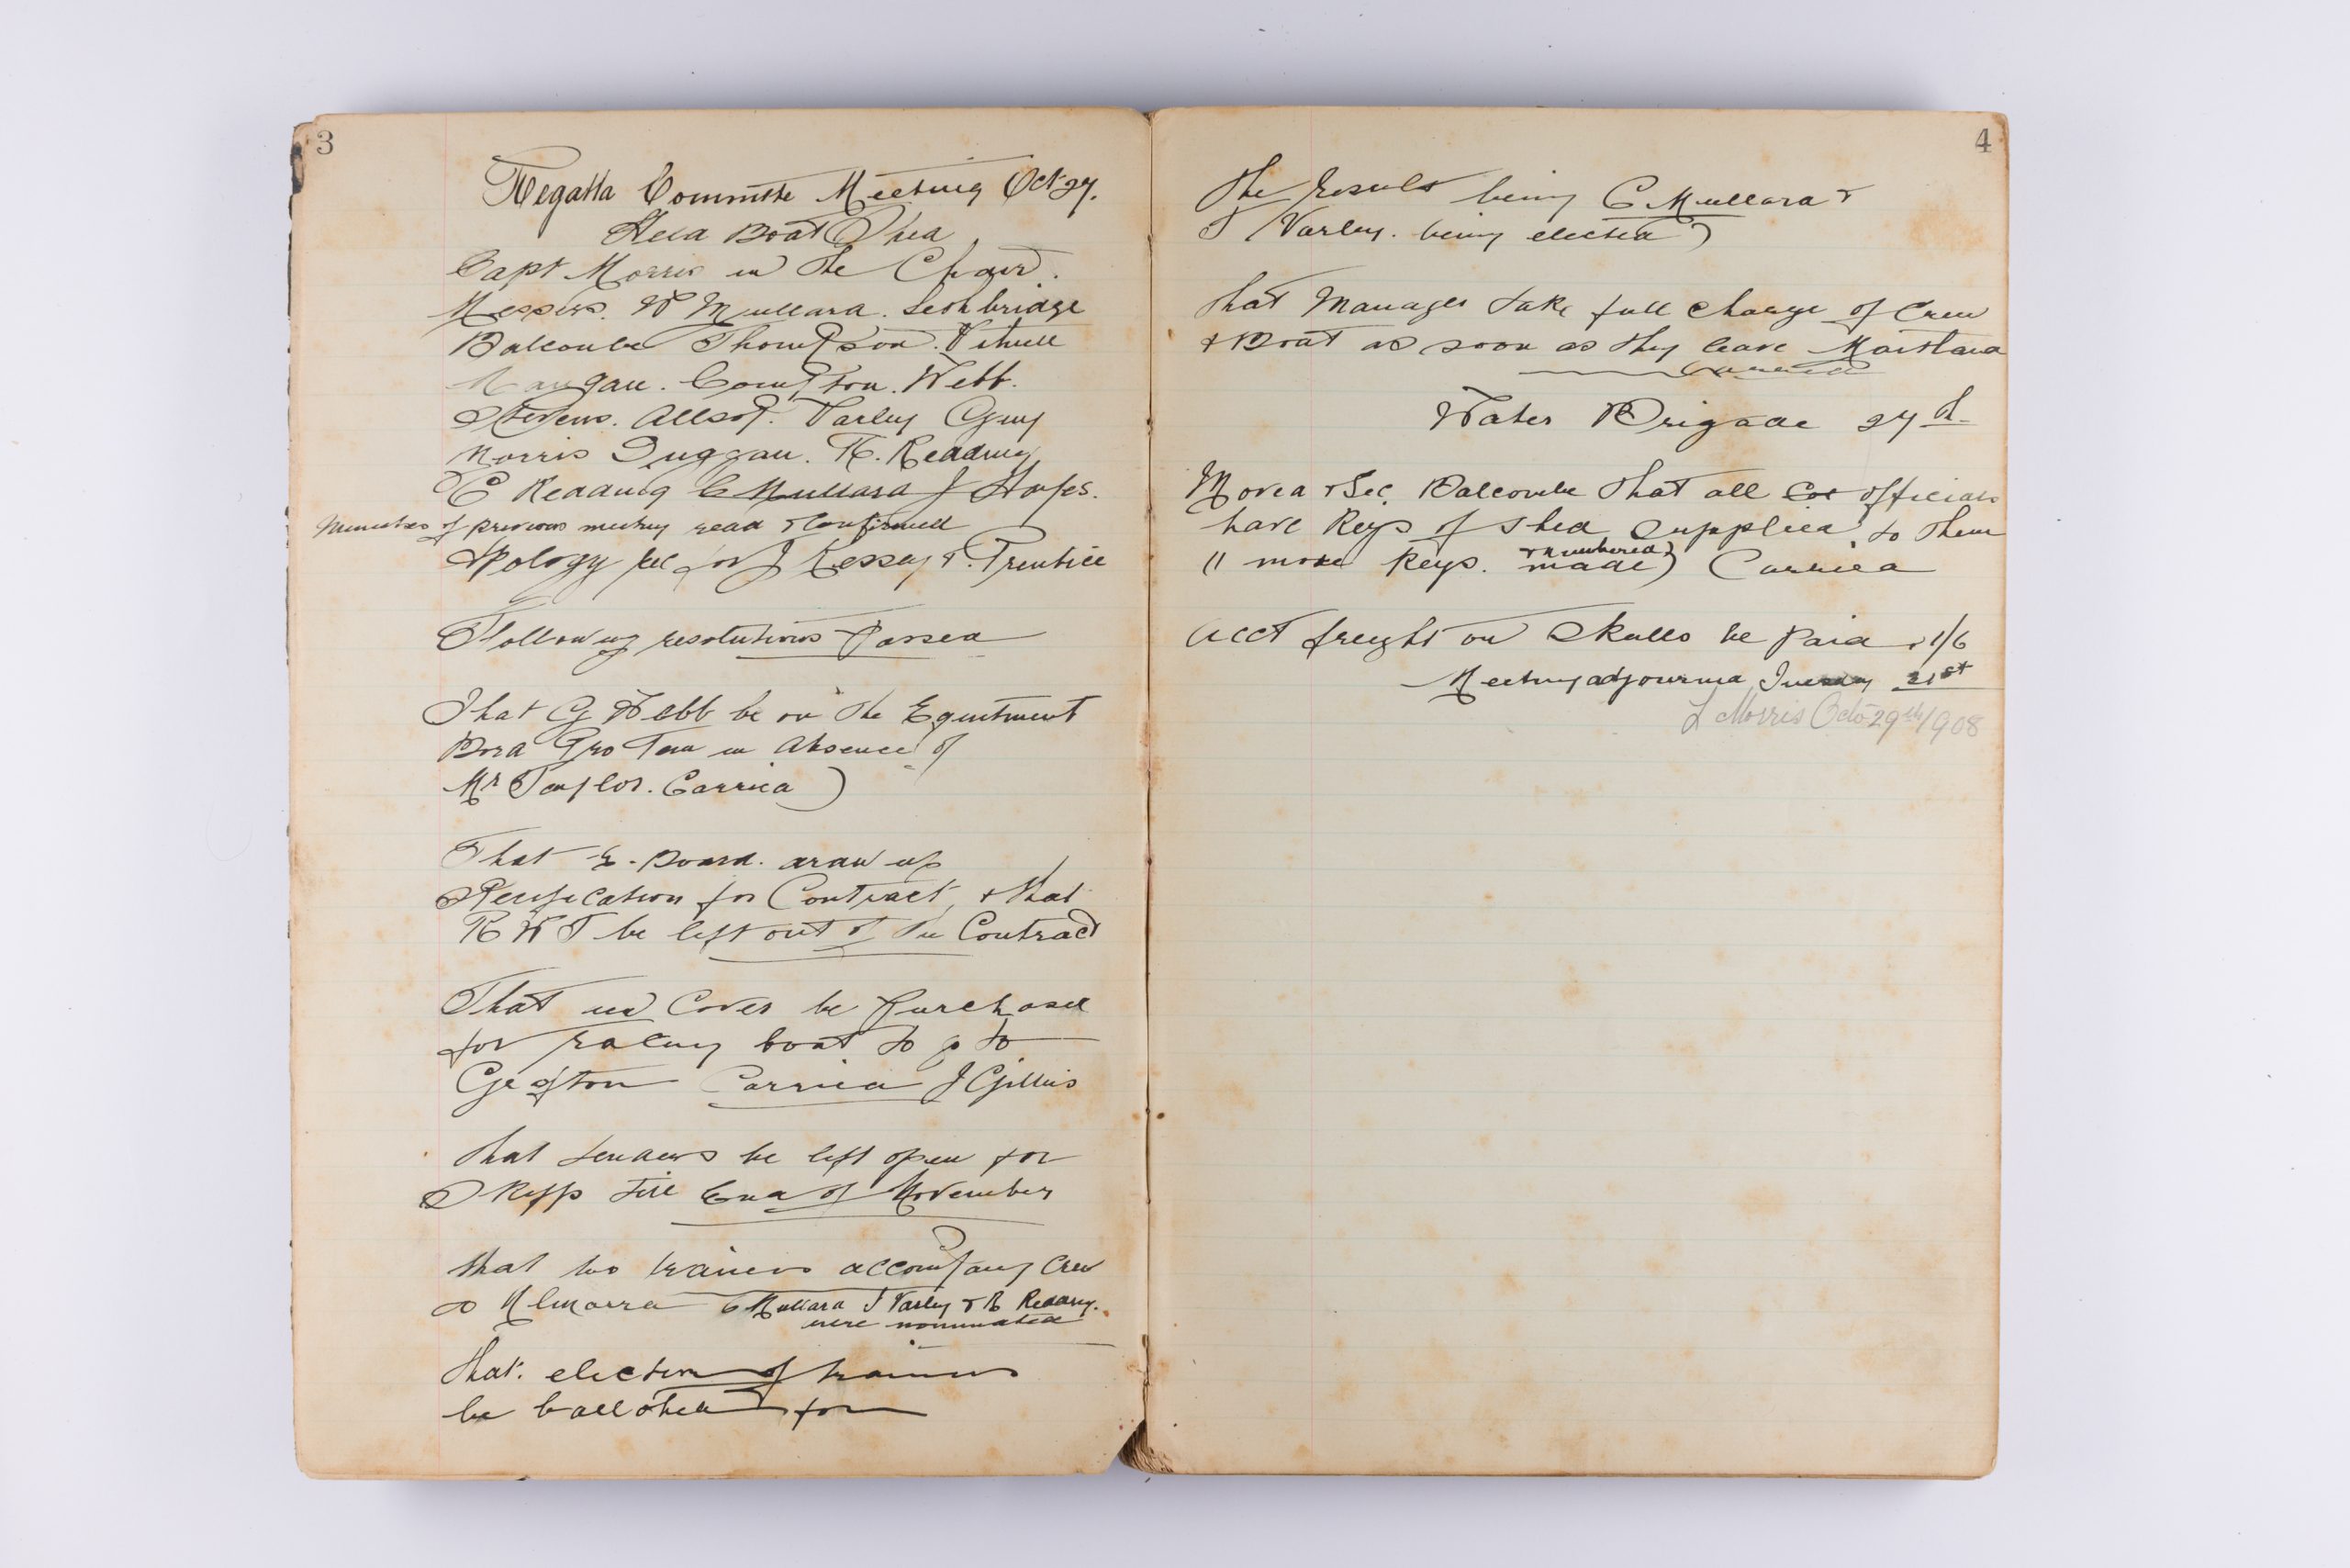 3
Regatta Committe Meeting Oct 27.
Held Boat Shed
Capt Morris in the Chair.
Messrs. W Mullard. Lethbridge
Balcombe Thompson.
Mangan. Compton. Webb.
Stevens. Allsop. Varley Guy
Norris Duggan. R. Reading
E Reading C Mullard J Stopes.
Minutes of previous meeting read & Confirmed
Apology rec for J Kessey & . Prentice
Following resolutions Passed
That G Webb be on the Equitment
Bord Pro Tem in Absence of
Mr Taylor. Carried )
That E. Board. draw up
Specification for Contract, & that
R W T be left out of the Contract
That cover be Purchased
for racing boat to go to
Carried J Gillies
That tenders be left open for
Skiffs till End of November
that two trainers accompany Crew
to C Mullard J Varley & R Reading.
were nominated
that. election of trainers
be balloted for
4
The result being C. Mullard &
J Varley. being elected )
That Manager take full charge of Crew
& Boat as soon as they leave Maitland
Carried
Water Brigade 27th
Moved & Sec. Balcombe that all officials
have Keys of Shed Supplied to them
(( more Keys. & numbered made ) Carried
Acct freight on Skulls be paid 1/6
Meeting adjourned Tuesday 31st
L Morris Octo 29th/908